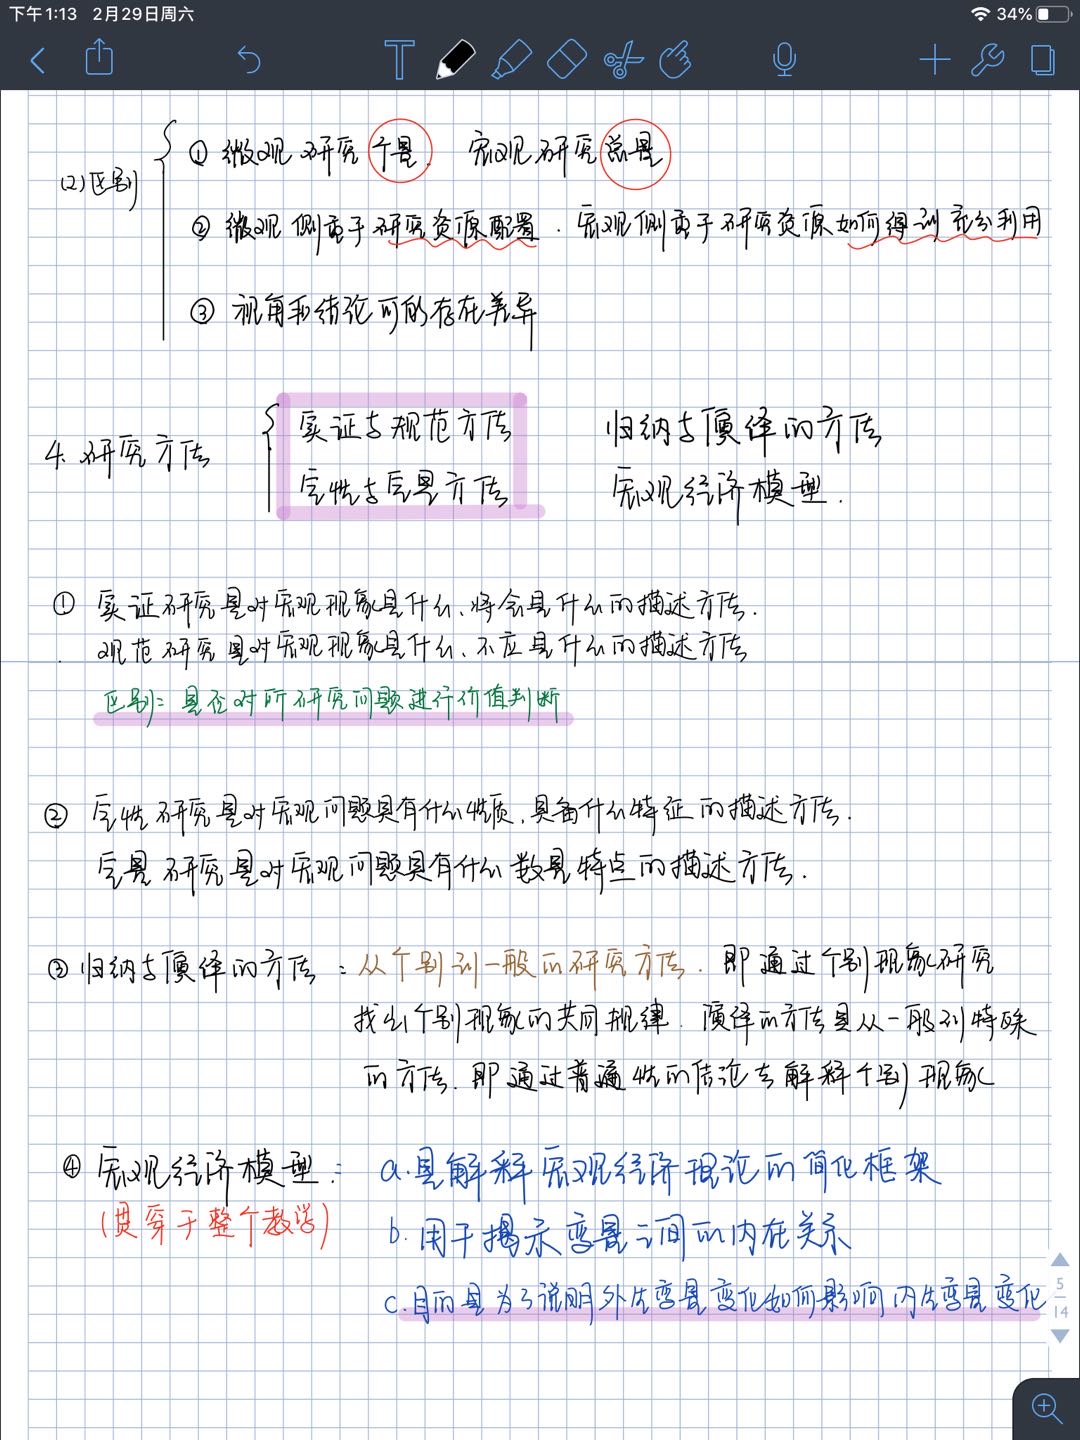 下午1:13 2月29日周六
34%
(2)区别
① 微观研究个量. 宏观研究总量
② 微观侧重于研究资源配置. 宏观侧重于研究资源如何得到充分利用
③ 视角和结论可能存在差异
4. 研究方法
实证与规范方法 归纳与演绎的方法
定性与定量方法 宏观经济模型.
① 实证研究是对宏观现象是什么、将会是什么的描述方法.
规范研究是对宏观现象是什么、不应是什么的描述方法
区别: 是否对所研究问题进行价值判断
② 定性研究是对宏观问题具有什么性质,具备什么特征的描述方法.
定量研究是对宏观问题具有什么数量特点的描述方法.
③ 归纳与演绎的方法: 从个别到一般的研究方法. 即通过个别现象研究
找出个别现象的共同规律. 演绎的方法是从一般到特殊
的方法. 即通过普遍性的结论去解释个别现象
④ 宏观经济模型: a.是解释宏观经济理论的简化框架
(贯穿于整个教学) b.用于揭示变量之间的内在关系
c.目的是为了说明外生变量变化如何影响内生变量变化
5
14